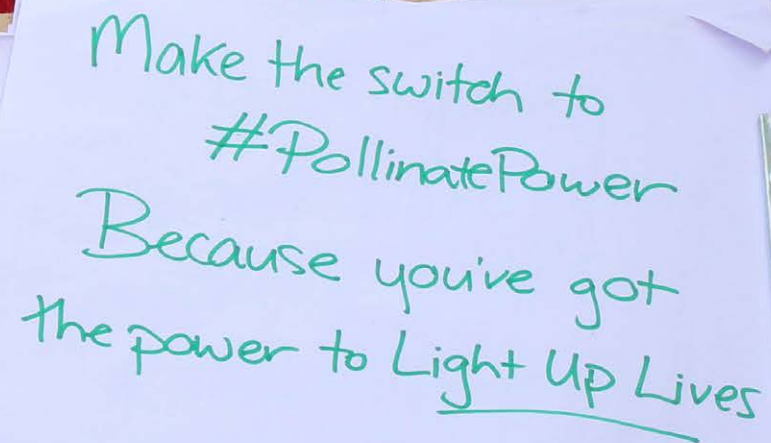 Make the switch to
#PollinatePower
Because you've got
the power to Light Up Lives